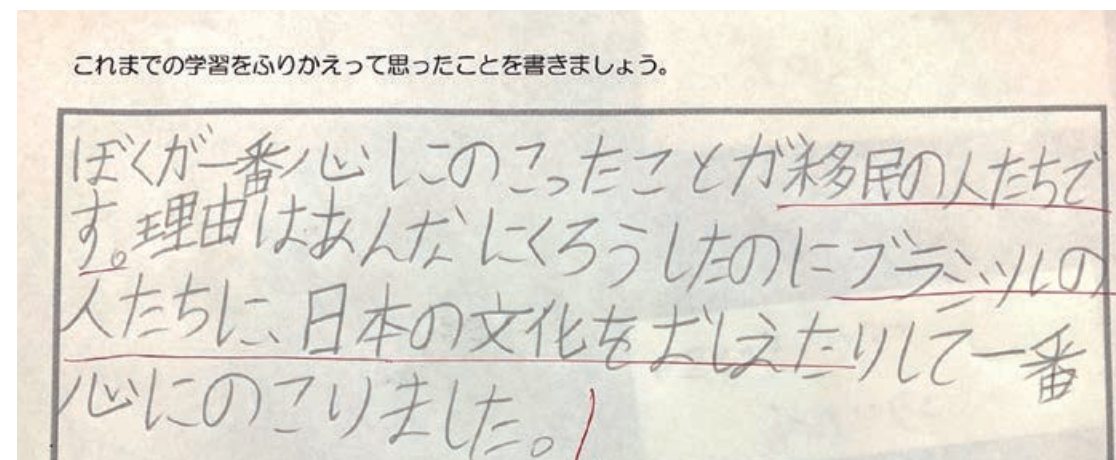 これまでの学習をふりかえって思ったことを書きましょう。
ぼくが一番心にのこったことが移民の人たちで
す。理由はあんなにくろうしたのにブラジルの
人たちに、日本の文化をおしえたりして一番
心にのこりました。